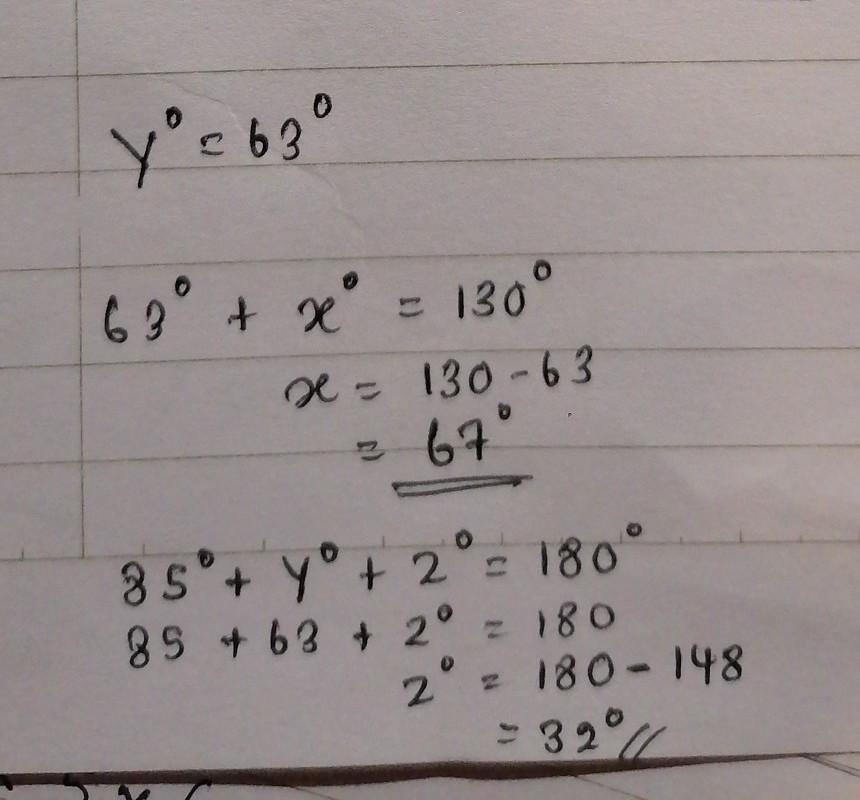 y° = 63°
63° + x° = 130°
x = 130 - 63
= 67°
85° + y° + 2° = 180°
85 + 63 + 2° = 180
2° = 180 - 148
= 32° //